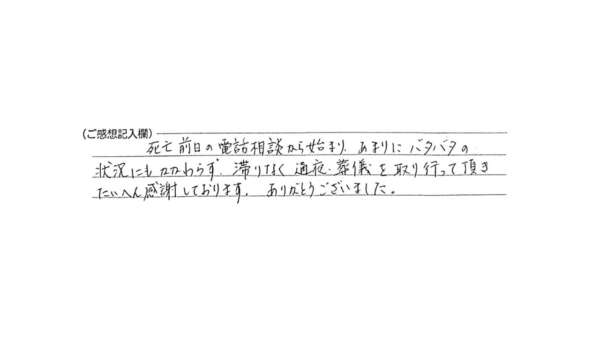 (ご感想記入欄)
死亡前日の電話相談から始まり、あまりにバタバタの
状況にもかかわらず、滞りなく通夜・葬儀を取り行って頂き
たいへん感謝しております。ありがとうございました。